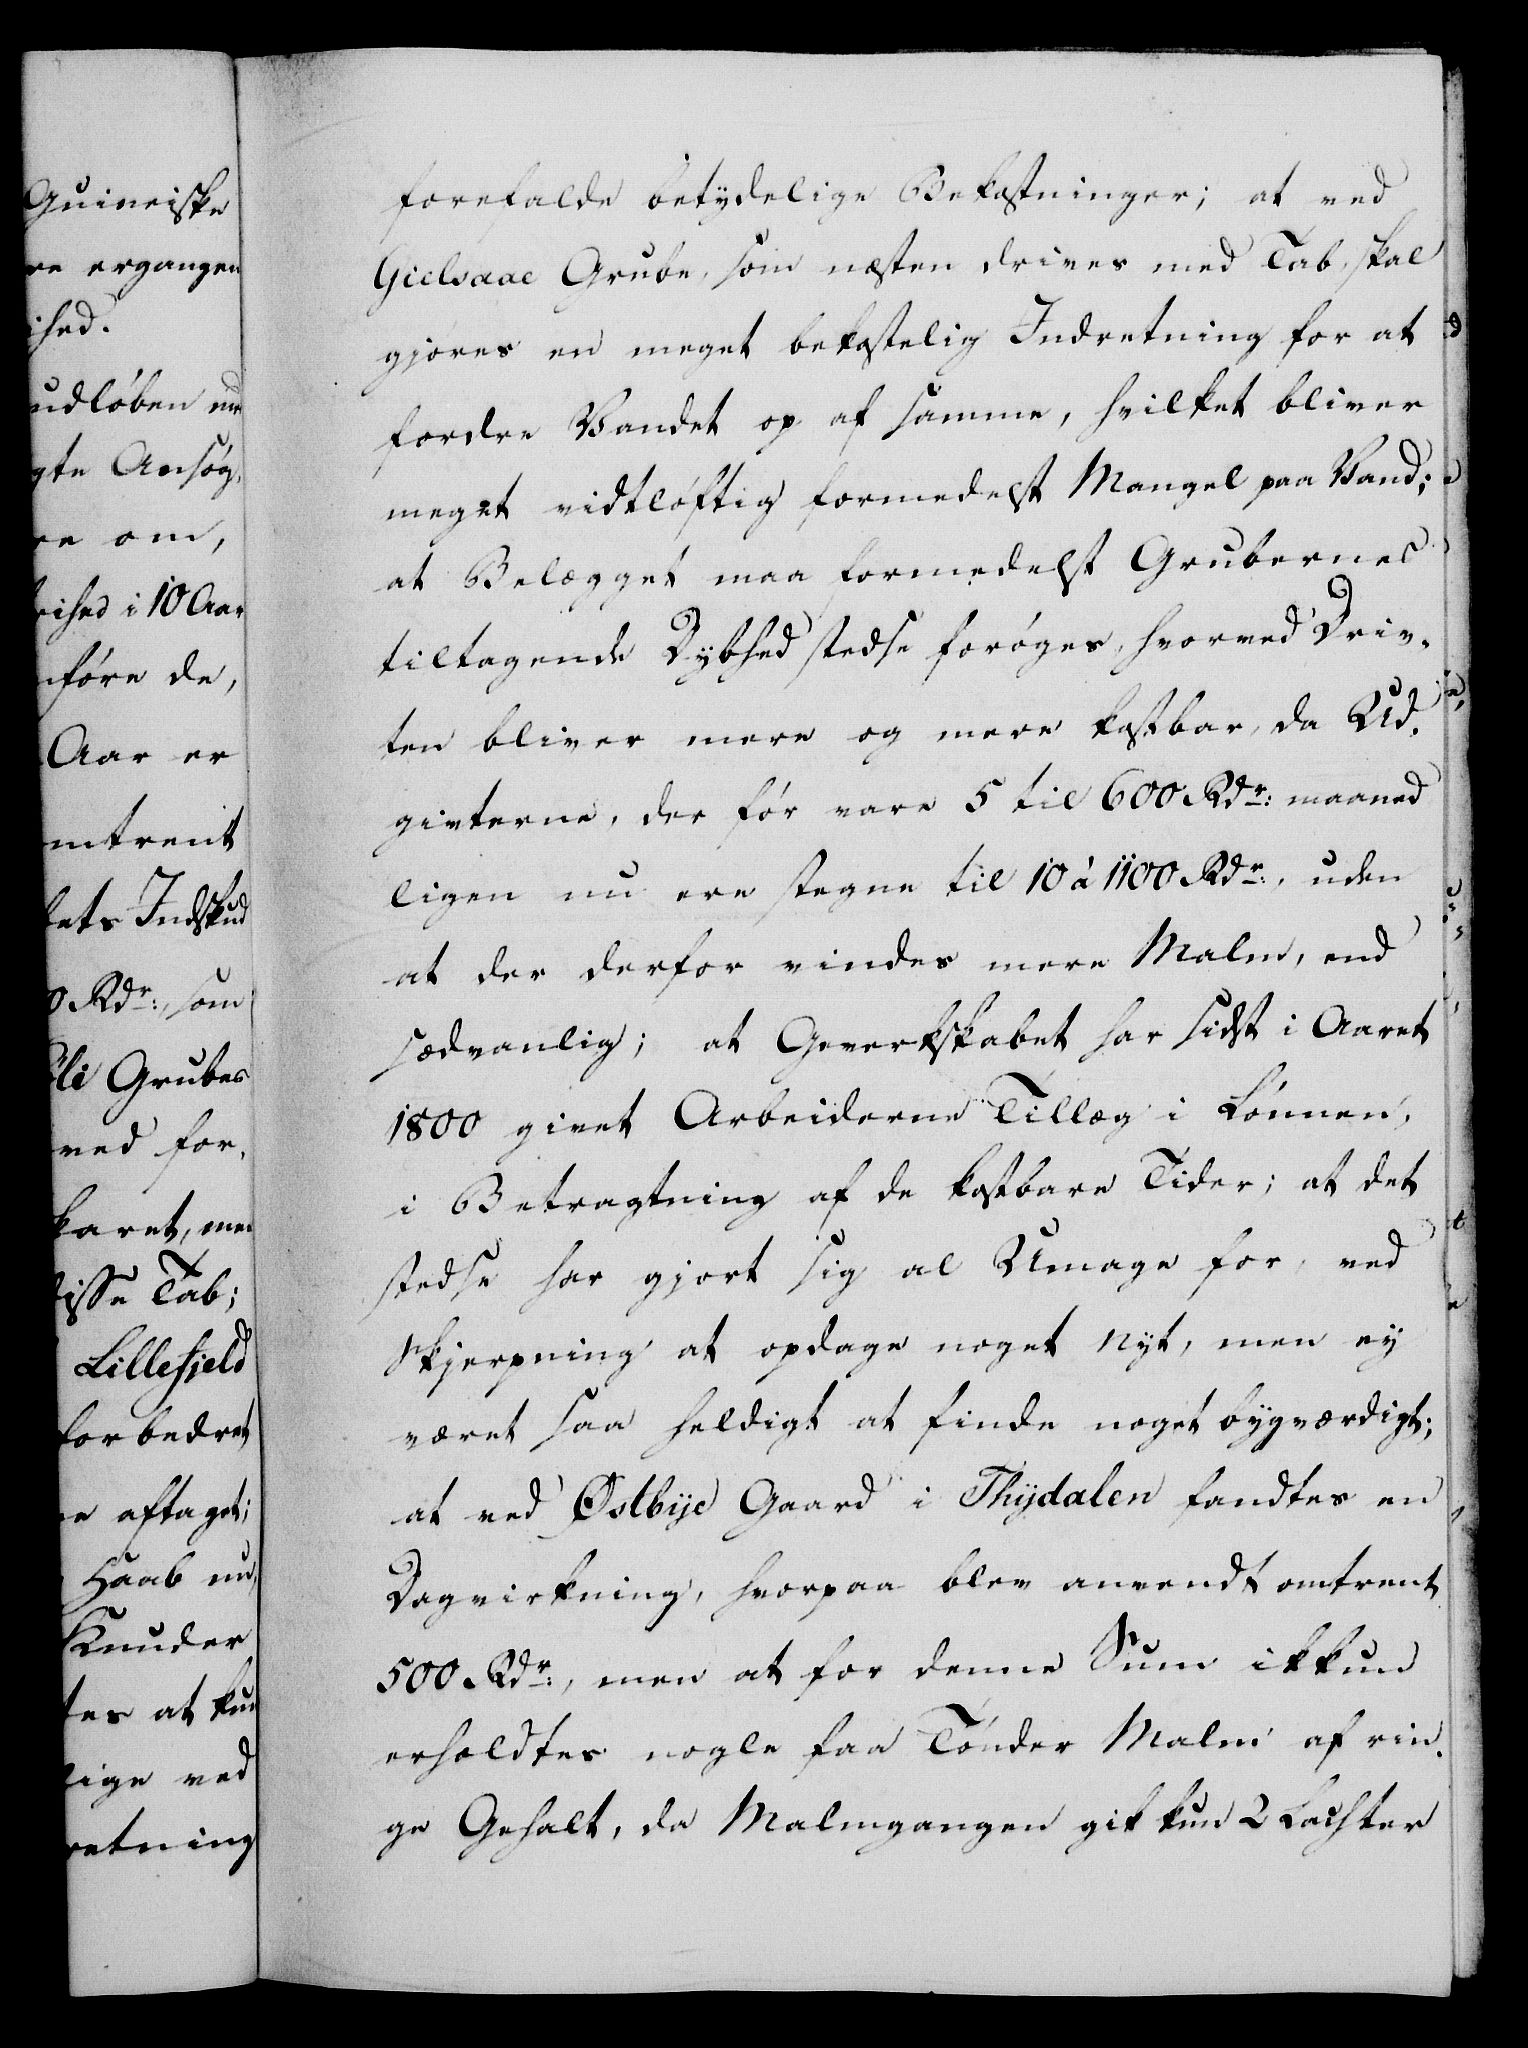 Guineiske
re ergangen
ihed.
udløben
gte Ansøg,
re om,
rihed i 10 Aar
føre de,
Aar er
mtrent
kets Indskud
0 Rdr:, som
li Grubes
ved for,
karet, men
disse Tab;
Lillefjeld
forbedret
e aftaget;
Haab
Knuder
tes at kun
lige ved
retning
forefalde betydelige Bekostninger; at ved
Gielsaae Grube, som næsten drives med Tab, skal
gjøres en meget bekostelig Indretning for at
fordre Vandet op af samme, hvilket bliver
meget vidtløftig formedelst Mangel paa Vand;
at Belægget maa formedelst Grubernes
tiltagende Dybhed stedse forøges, hvorved Driv-
ten bliver mere og mere kostbar, da Ud-
givterne, der før vare 5 til 600 Rdr: maaned
ligen nu ere stegne til 10 à 1100 Rdr:, uden
at der derfor vindes mere Malm, end
sædvanlig; at Geverkskabet har sidst i Aaret
1800 givet Arbeiderne Tillæg i Lønnen,
i Betragtning af de kostbare Tider; at det
stedse har gjort sig al Umage for, ved
Skjerpning at opdage noget nyt, men ey
været saa heldigt at finde noget bygværdigt;
at ved Østbije Gaard i Thydalen fandtes en
Dagvirkning, hvorpaa blev anvendt omtrent
500 Rdr:, men at for denne Sum ikkun
erholdtes nogle faa Tønder Malm af rin-
ge Gehalt, da Malmgangen gik kun 2 Lachter